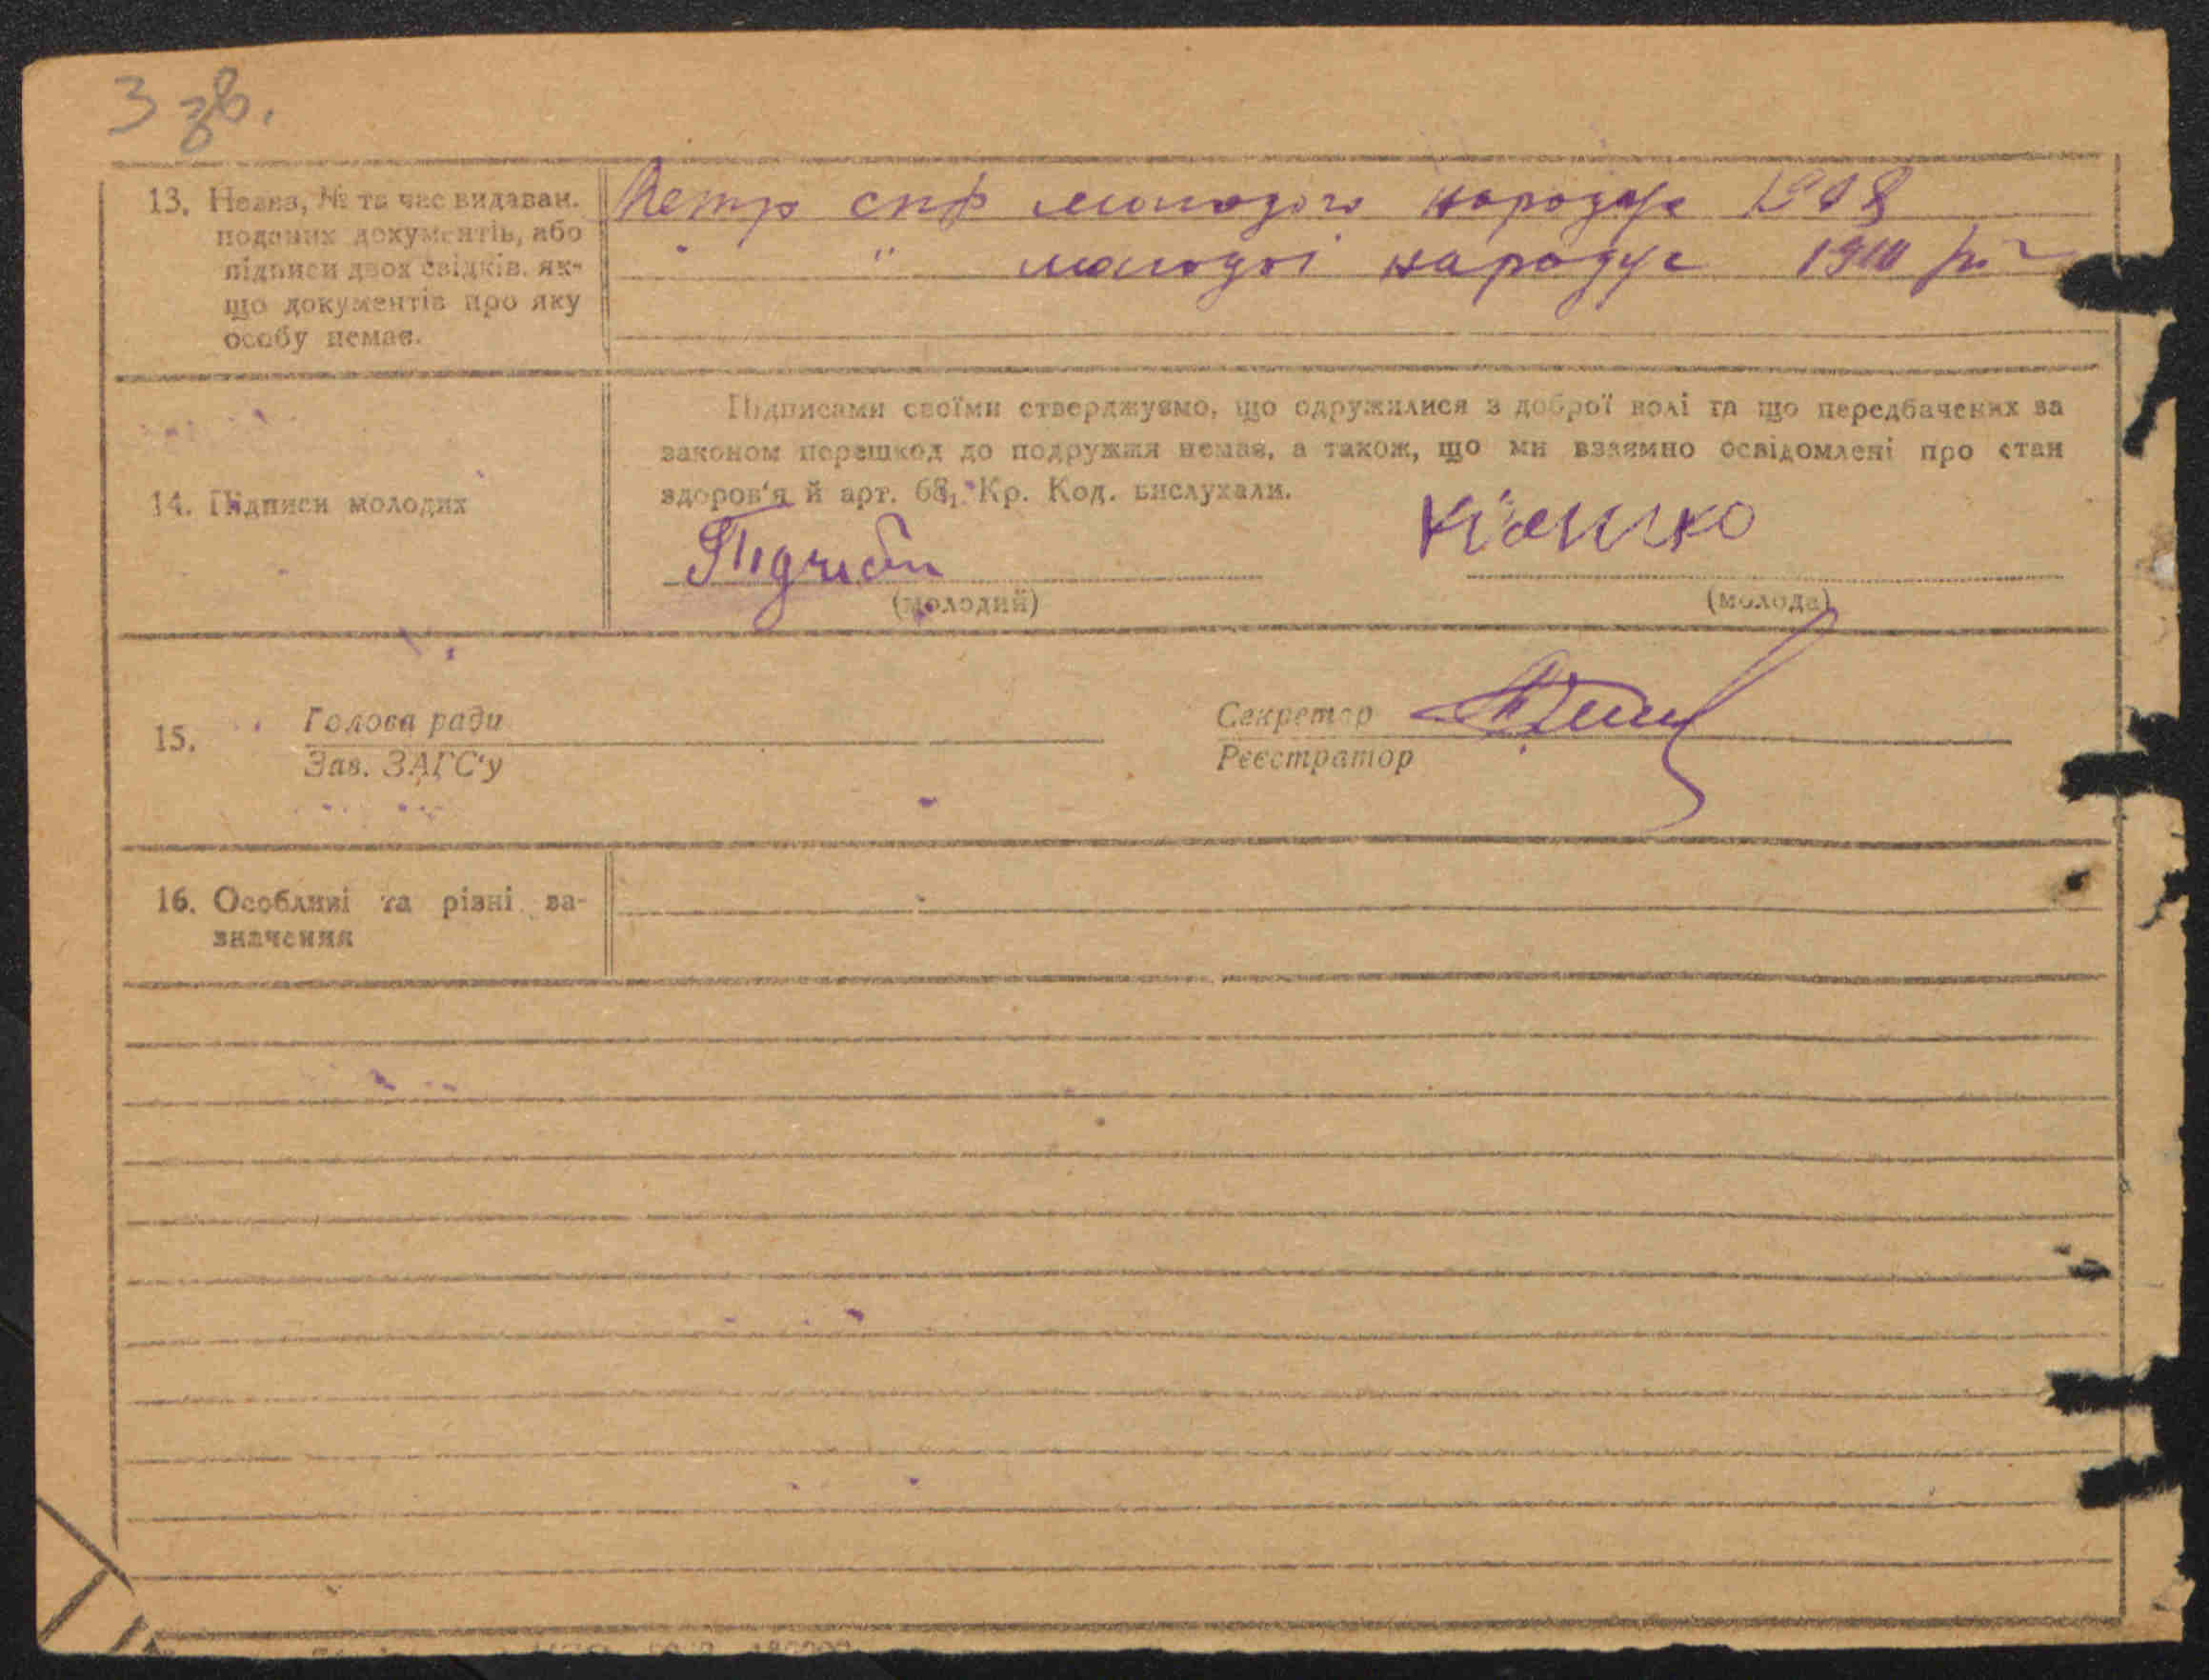 3 зв.
13. Назва, № та час видаван. поданих документів, або підписи двох свідків, якщо документів про яку особу немає.
молодого народж 1908
" молодої народже 1910 р.
Підписами своїми стверджуємо, що одружилися з доброї волі та що передбачених за
законом перешкод до подружжя немає, а також, що ми взаємно освідомлені про стан
здоров'я й арт. 68₁ Кр. Код. вислухали.
14. Підписи молодих
(молодий)
(молода)
15.
Голова ради
Зав. ЗАГС'у
Секретар
Реєстратор
16. Особливі та різні за-
значення